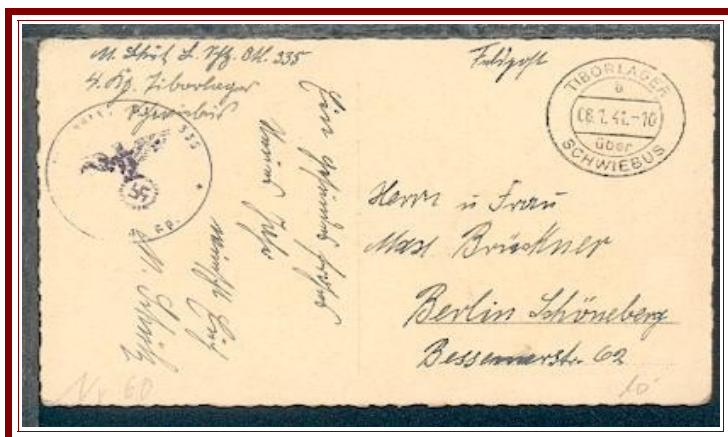 M. Schütz L. Sch. Btl. 335
4. Kp. Tiborlager
Schwiebus
Feldpost
TIBORLAGER
a
06.1.41.-10
über
SCHWIEBUS
335
Ein gesundes frohes
Neues Jahr
wünscht Euch
M. Schütz
Herrn u Frau
Max Brückner
Berlin Schöneberg
Bessemerstr. 62
Nr 60
10